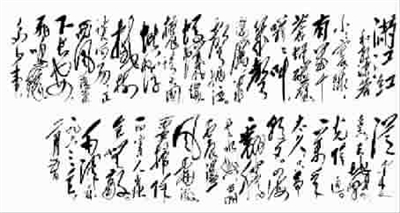 满江红
和郭沫若
小小寰球
有几个
苍蝇碰壁
嗡嗡叫
几声
凄厉几
声抽泣
蚂蚁缘
槐夸大国
蚍蜉
撼树
谈何易正
西风落叶
下长安
飞鸣镝
多少事
从来
急天地转
光阴迫
一万年
太久只争
朝夕四海
翻腾
云水怒五洲
震荡
风雷激
要扫除
一切害人虫
全无敌
毛泽东
一九六三年
二月五日